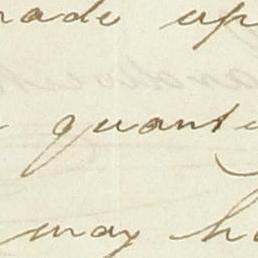 made up
quanty
may ha